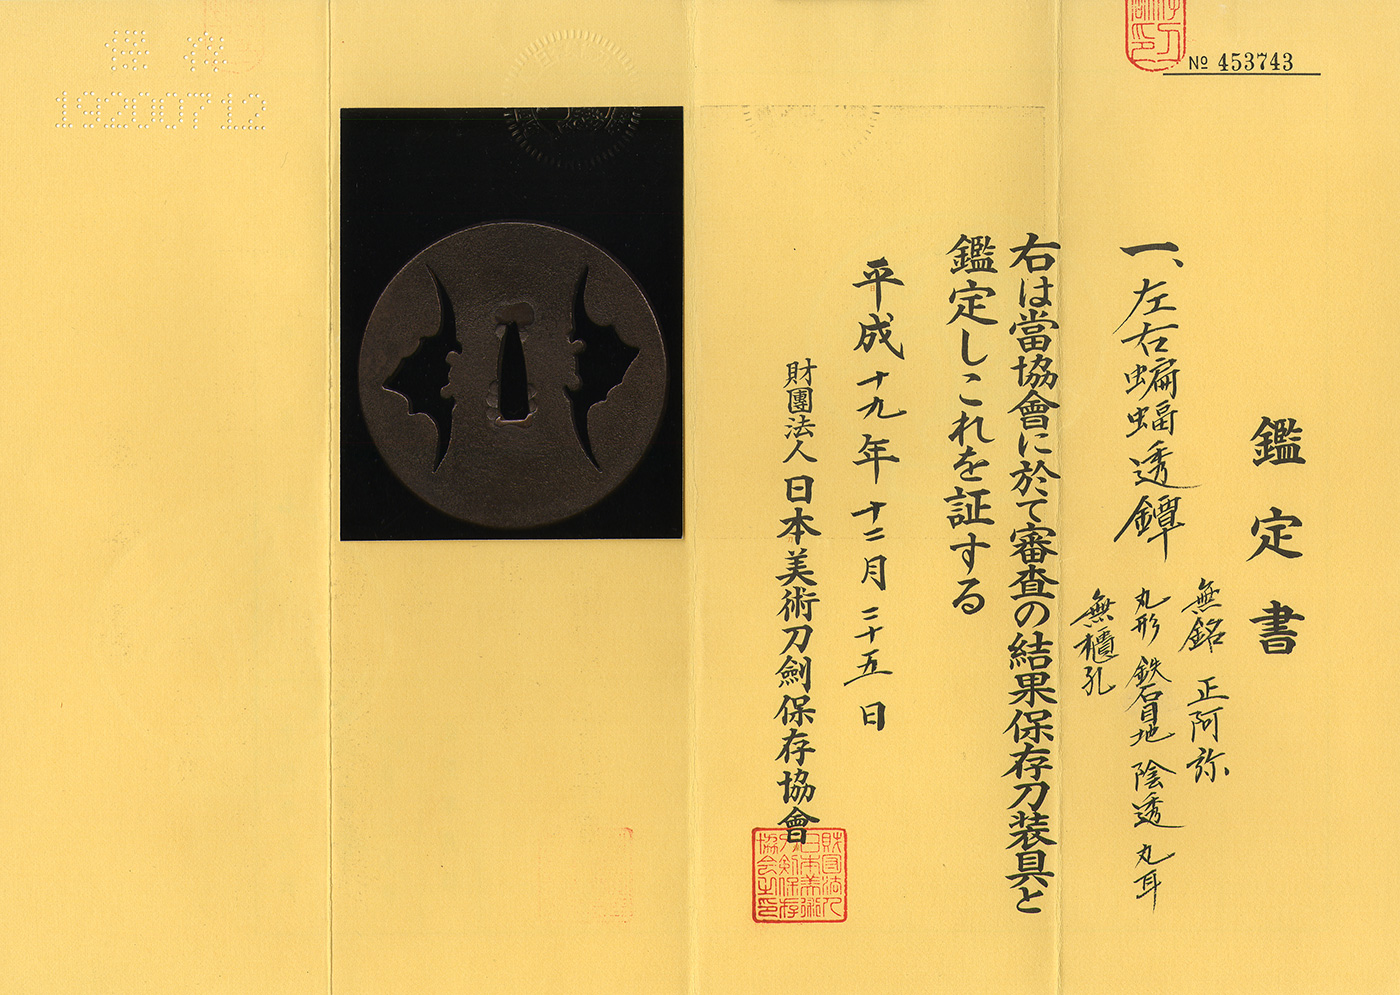 № 453743
鑑定書
一、左右蝙蝠透鐔
無銘 正阿弥
丸形 鉄石目地 陰透 丸耳
無櫃孔
右は當協會に於て審査の結果保存刀装具と
鑑定しこれを証する
平成十九年十二月二十五日
財團法人日本美術刀劍保存協會
財団法人
日本美術
刀剣保存
協会之印
保存
19200712